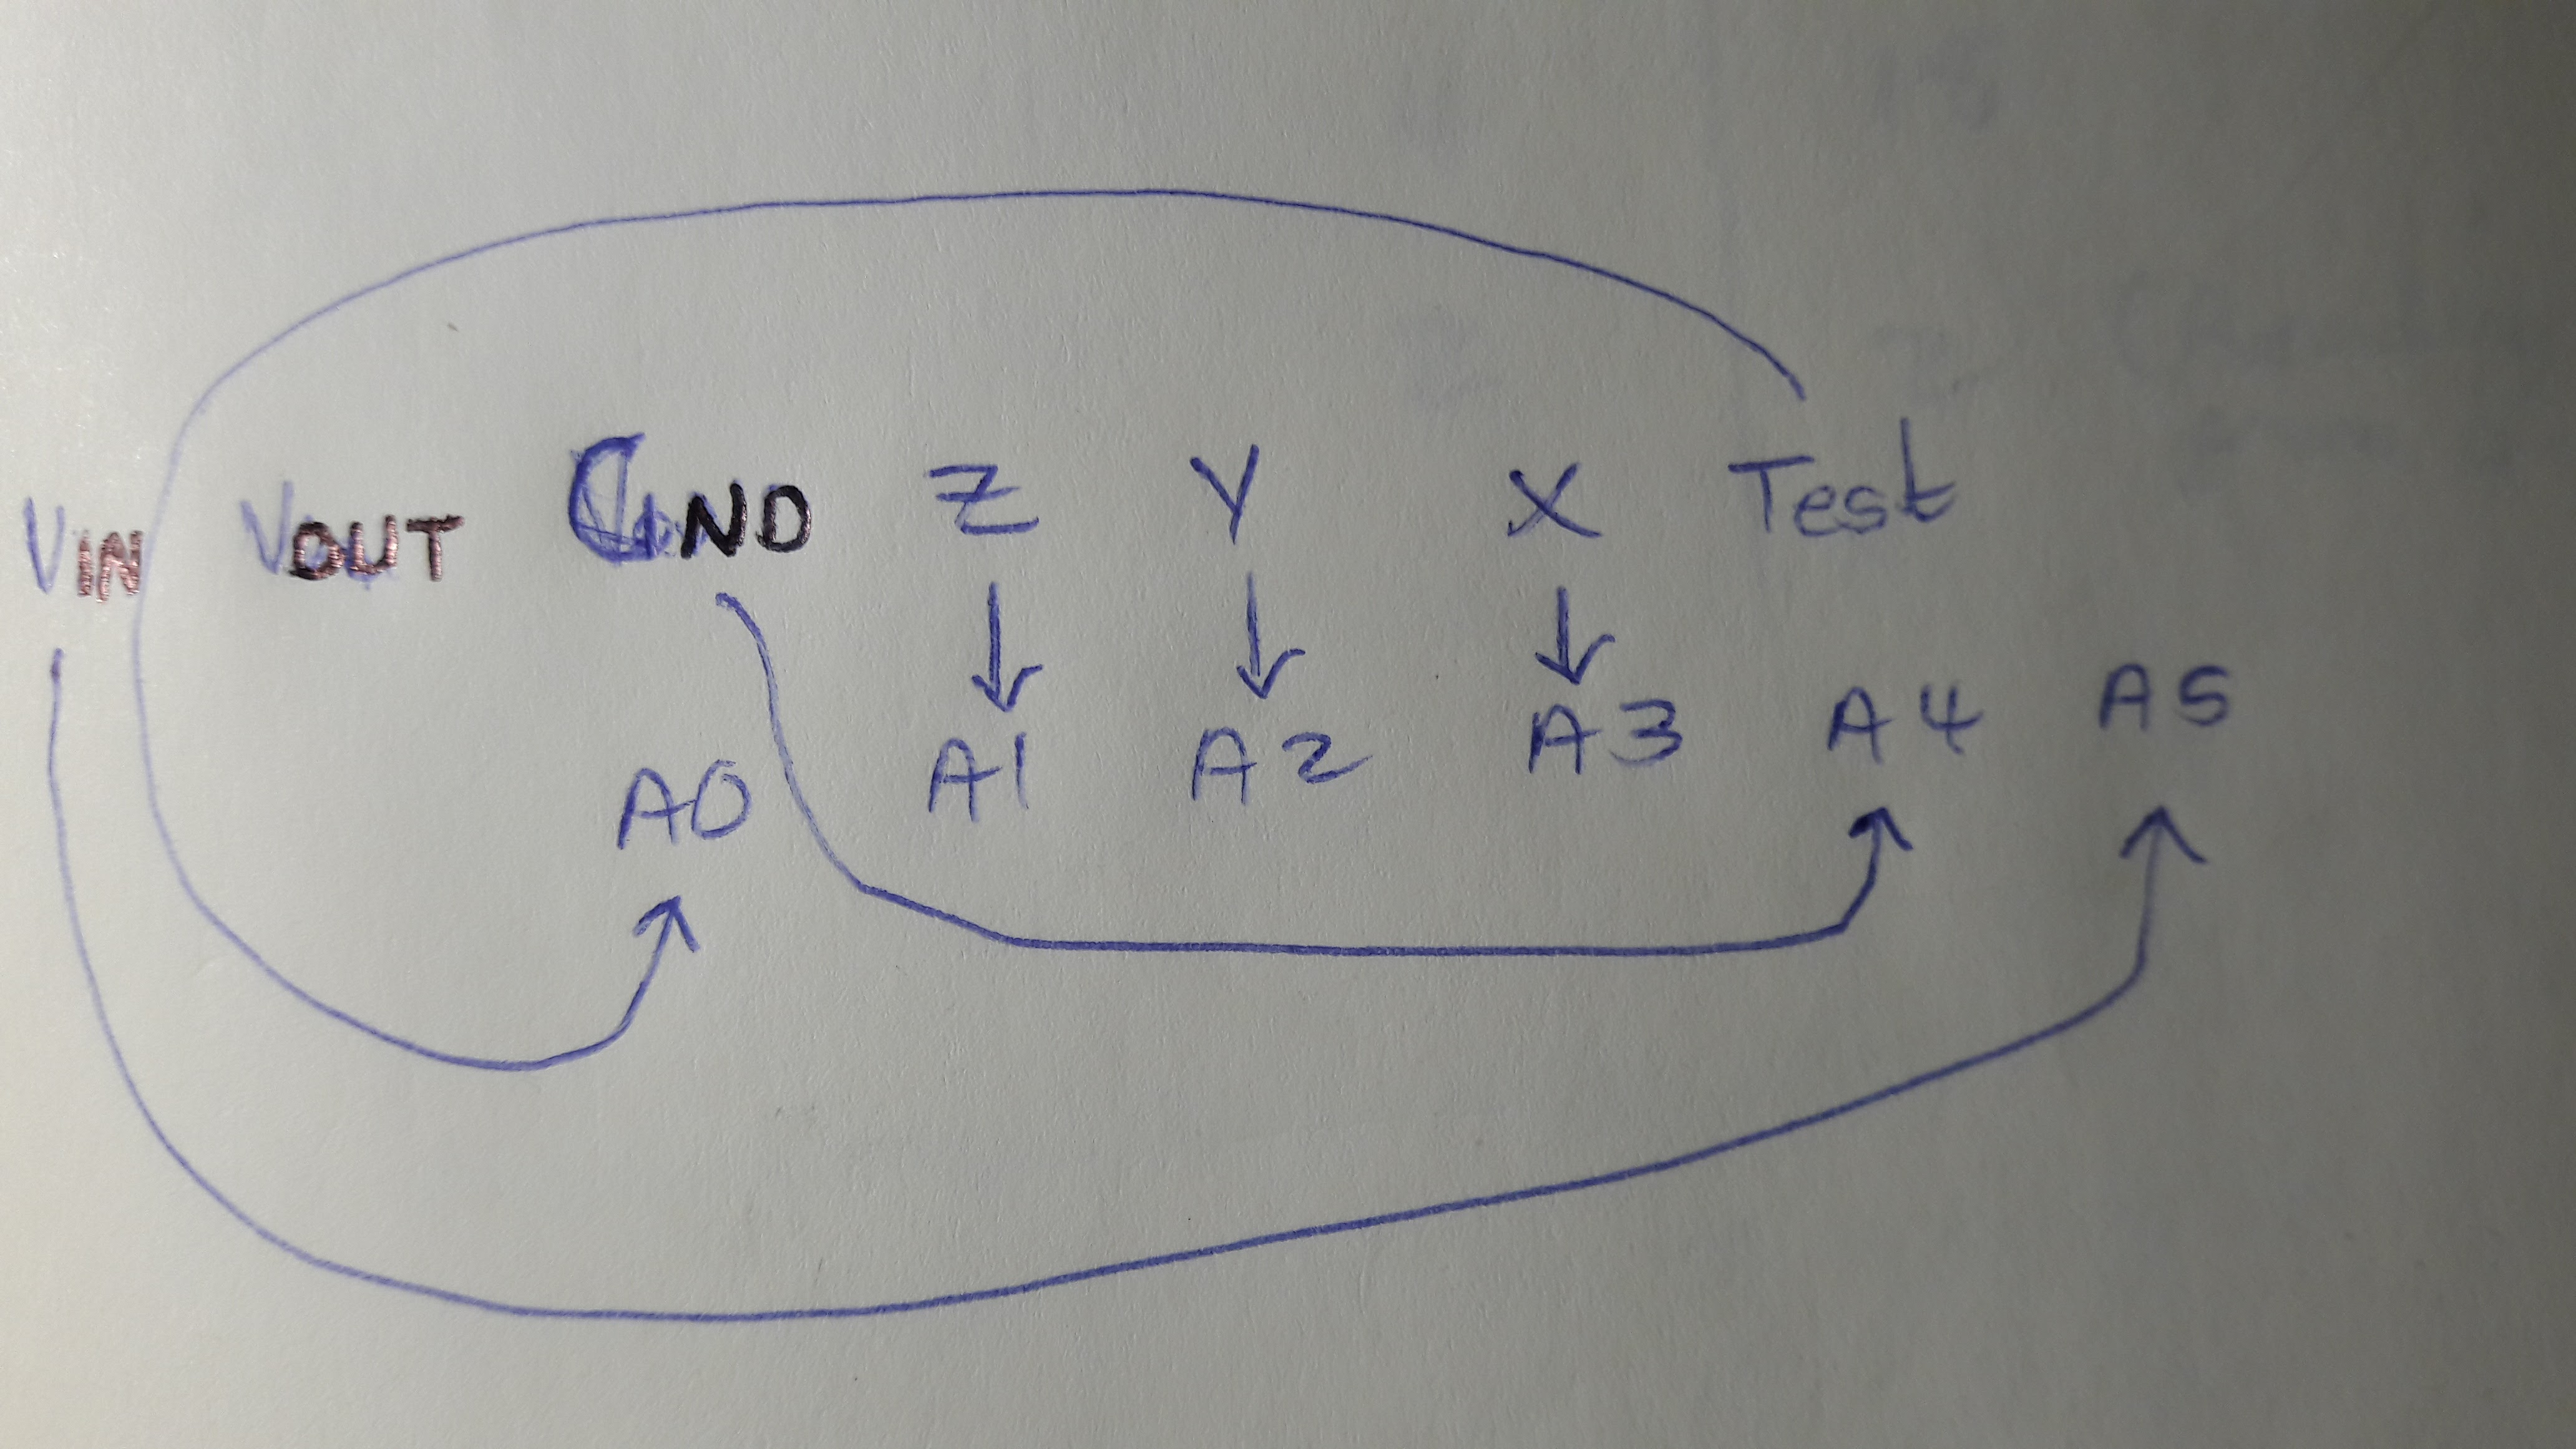 VIN VOUT GND Z Y X Test
A0 A1 A2 A3 A4 A5